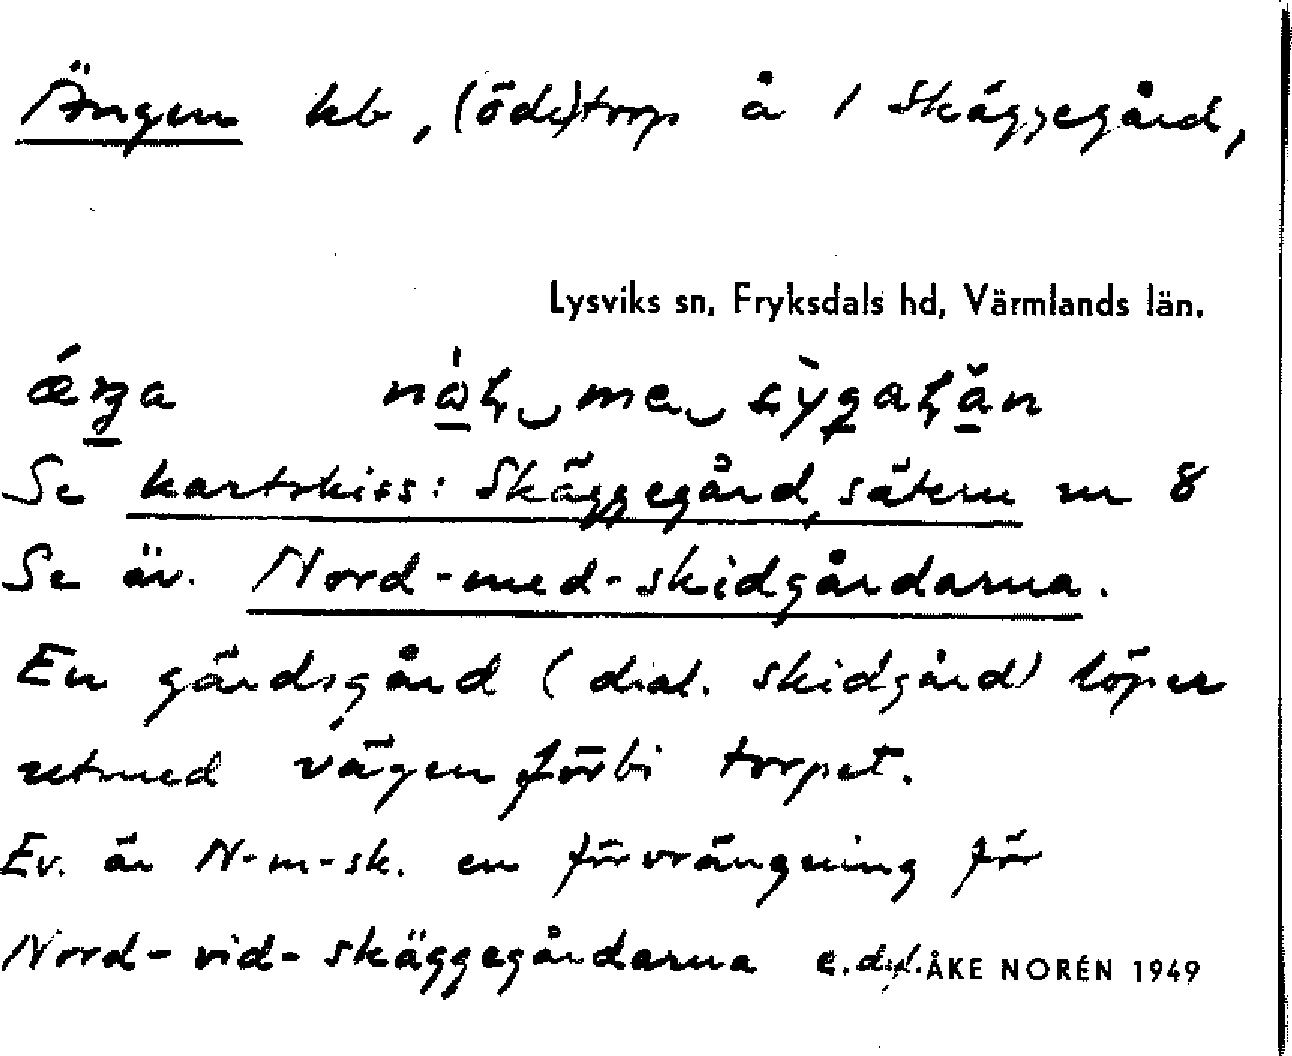 Ängen hb, (öde)torp å 1 Skäggegård,
Lysviks sn, Fryksdals hd, Värmlands län.
Se kartskiss: Skäggegård, sätern nr 8
Se äv. Nord-med-skidgårdarna.
En gärdsgård (dial. skidgård) löper
utmed vägen förbi torpet.
Ev. är N-m-sk. en förvrängning för
Nord-vid-skäggegårdarna e.dyl. ÅKE NORÉN 1949